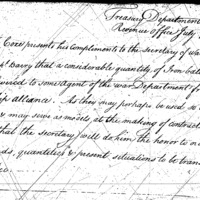 Treasury Department
Revenue Office July
Coxe presents his Compliments to the Secretary of Wa
Barry that a considerable quantity of Iron bal
to some Agent of the War Department f
ship alliance. As they may perhaps be used so
may serve as models at the making of contracts
that the secretary will do him the honor to or
quantities & present situations to be trans